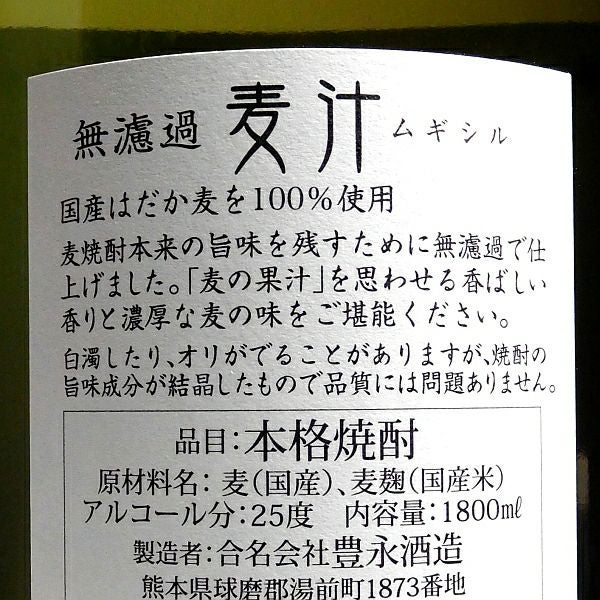 無濾過 麦汁 ムギシル
国産はだか麦を100%使用
麦焼酎本来の旨味を残すために無濾過で仕
上げました。「麦の果汁」を思わせる香ばしい
香りと濃厚な麦の味をご堪能ください。
白濁したり、オリがでることがありますが、焼酎の
旨味成分が結晶したもので品質には問題ありません。
品目：本格焼酎
原材料名：麦（国産）、麦麹（国産米）
アルコール分：25度　内容量：1800㎖
製造者：合名会社豊永酒造
熊本県球磨郡湯前町1873番地